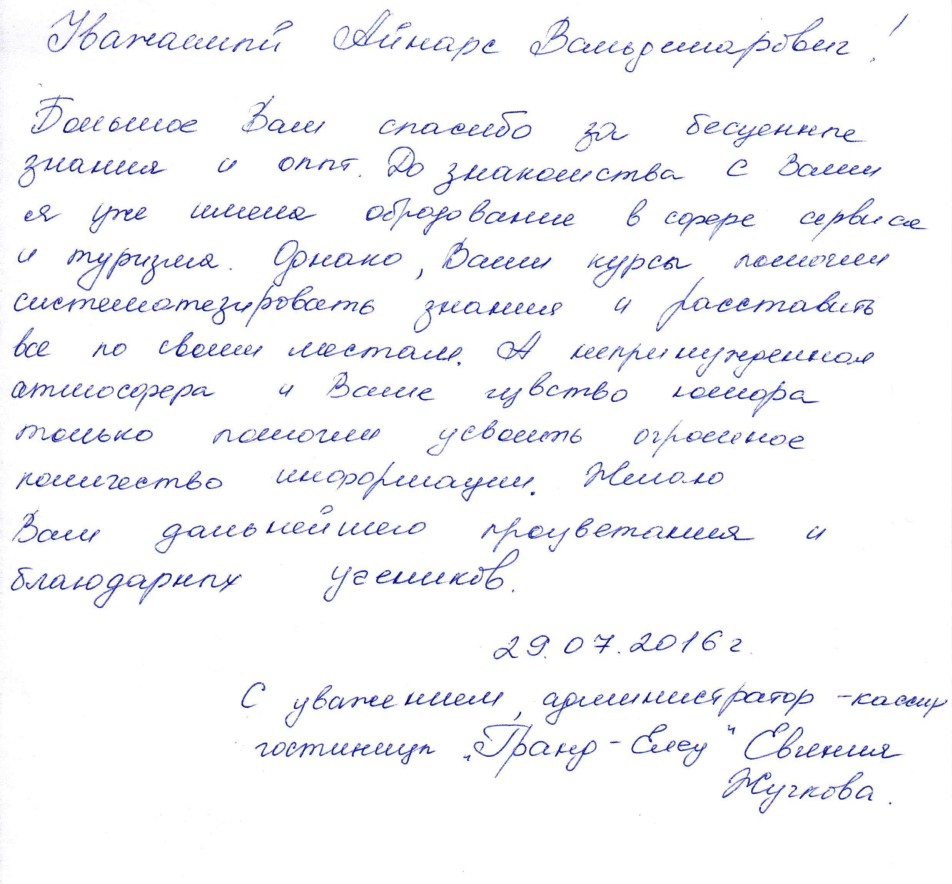 Уважаемый Айнарс Вальдемарович!
Большое Вам спасибо за бесценные
знания и опыт. До знакомства с Вами
я уже имела образование в сфере сервиса
и туризма. Однако, Ваши курсы помогли
систематезировать знания и расставить
все по своим местам. А непринужденная
атмосфера и Ваше чувство юмора
только помогли усвоить огромное
количество информации. Желаю
Вам дальнейшего процветания и
благодарных учеников.
29.07.2016 г.
С уважением, администратор-кассир
гостиницы „Гранд-Елец" Евгения
Жучкова.